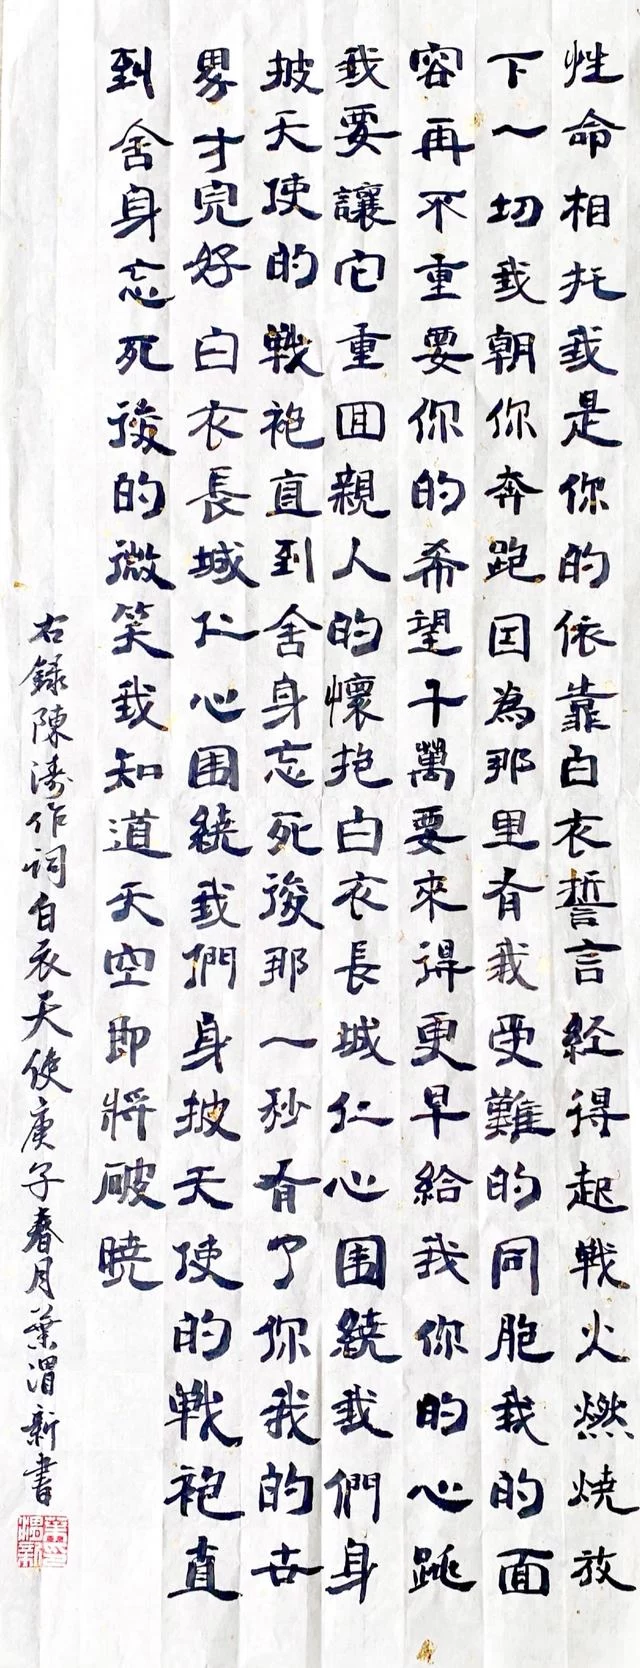 性命相托我是你的依靠白衣誓言经得起戰火燃燒放
下一切我朝你奔跑因為那里有我受難的同胞我的面
容再不重要你的希望千萬要來得更早給我你的心跳
我要讓它重回親人的懷抱白衣長城仁心围繞我們身
披天使的戰袍直到舍身忘死後那一秒有了你我的世
界才完好白衣長城仁心围繞我們身披天使的戰袍直
到舍身忘死後的微笑我知道天空即將破曉
右錄陳濤作詞白衣天使庚子春月葉渭新書